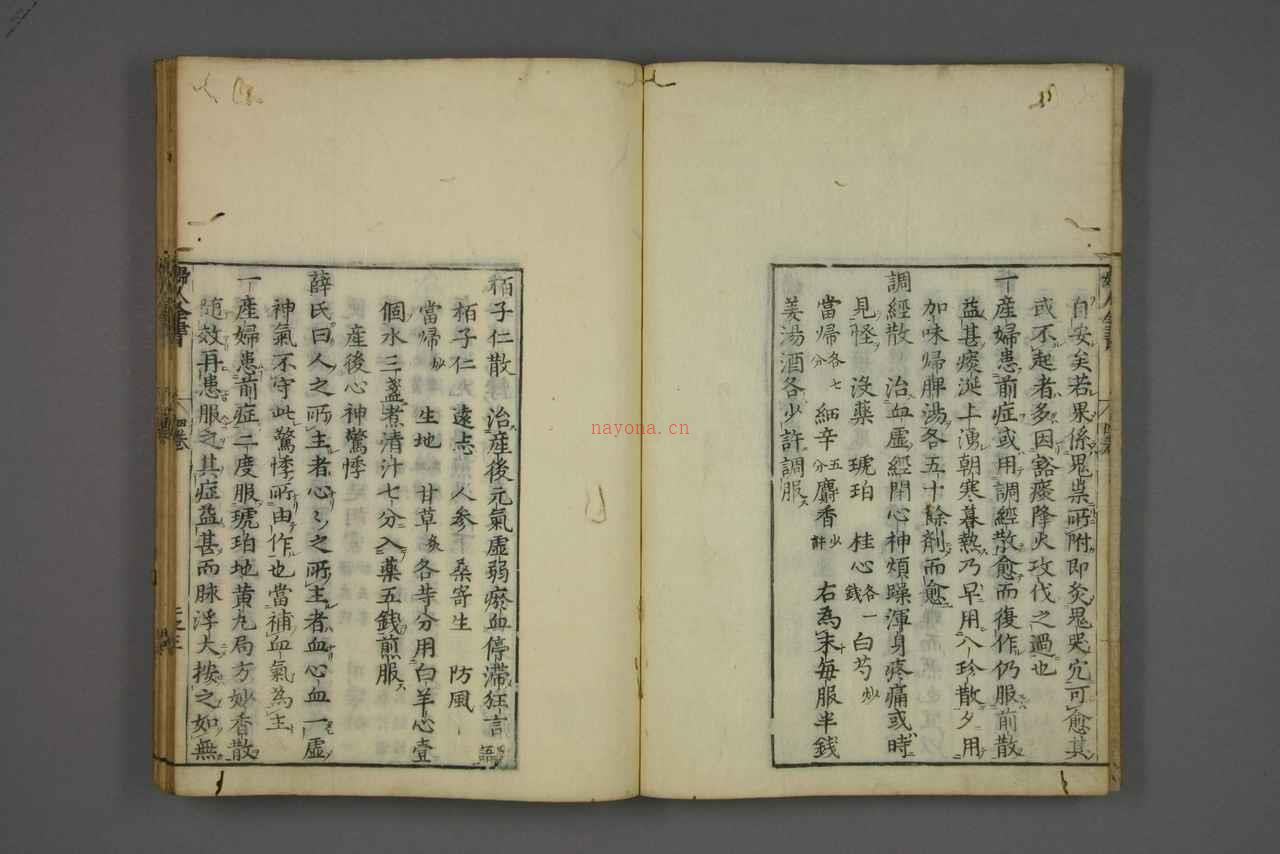 自安矣若果係鬼祟所附即灸鬼哭穴可愈其
或不起者多因豁痰降火攻伐之過也
一產婦患前症或用調經散愈而復作仍服前散
益甚痰涎上湧朝寒暮熱乃早用八珍散夕用
加味歸脾湯各五十餘劑而愈
調經散 治血虛經閉心神煩躁渾身疼痛或時
見怪 沒藥 琥珀 桂心各一錢 白芍炒
當歸各七分 細辛五分 麝香少許 右為末每服半錢
姜湯酒各少許調服
栢子仁散 治產後元氣虛弱瘀血停滯狂言語
栢子仁 遠志 人參 桑寄生 防風
當歸炒 生地 甘草炙 各等分用白羊心壹
個水三盞煮清汁七分入藥五錢煎服
產後心神驚悸
薛氏曰人之所主者心〻之所主者血心血一虛
神氣不守此驚悸所由作也當補血氣為主
一產婦患前症二度服琥珀地黄丸局方妙香散
随效再患服之其症益甚而脉浮大按之如無
婦人全書
四卷
nayona.cn